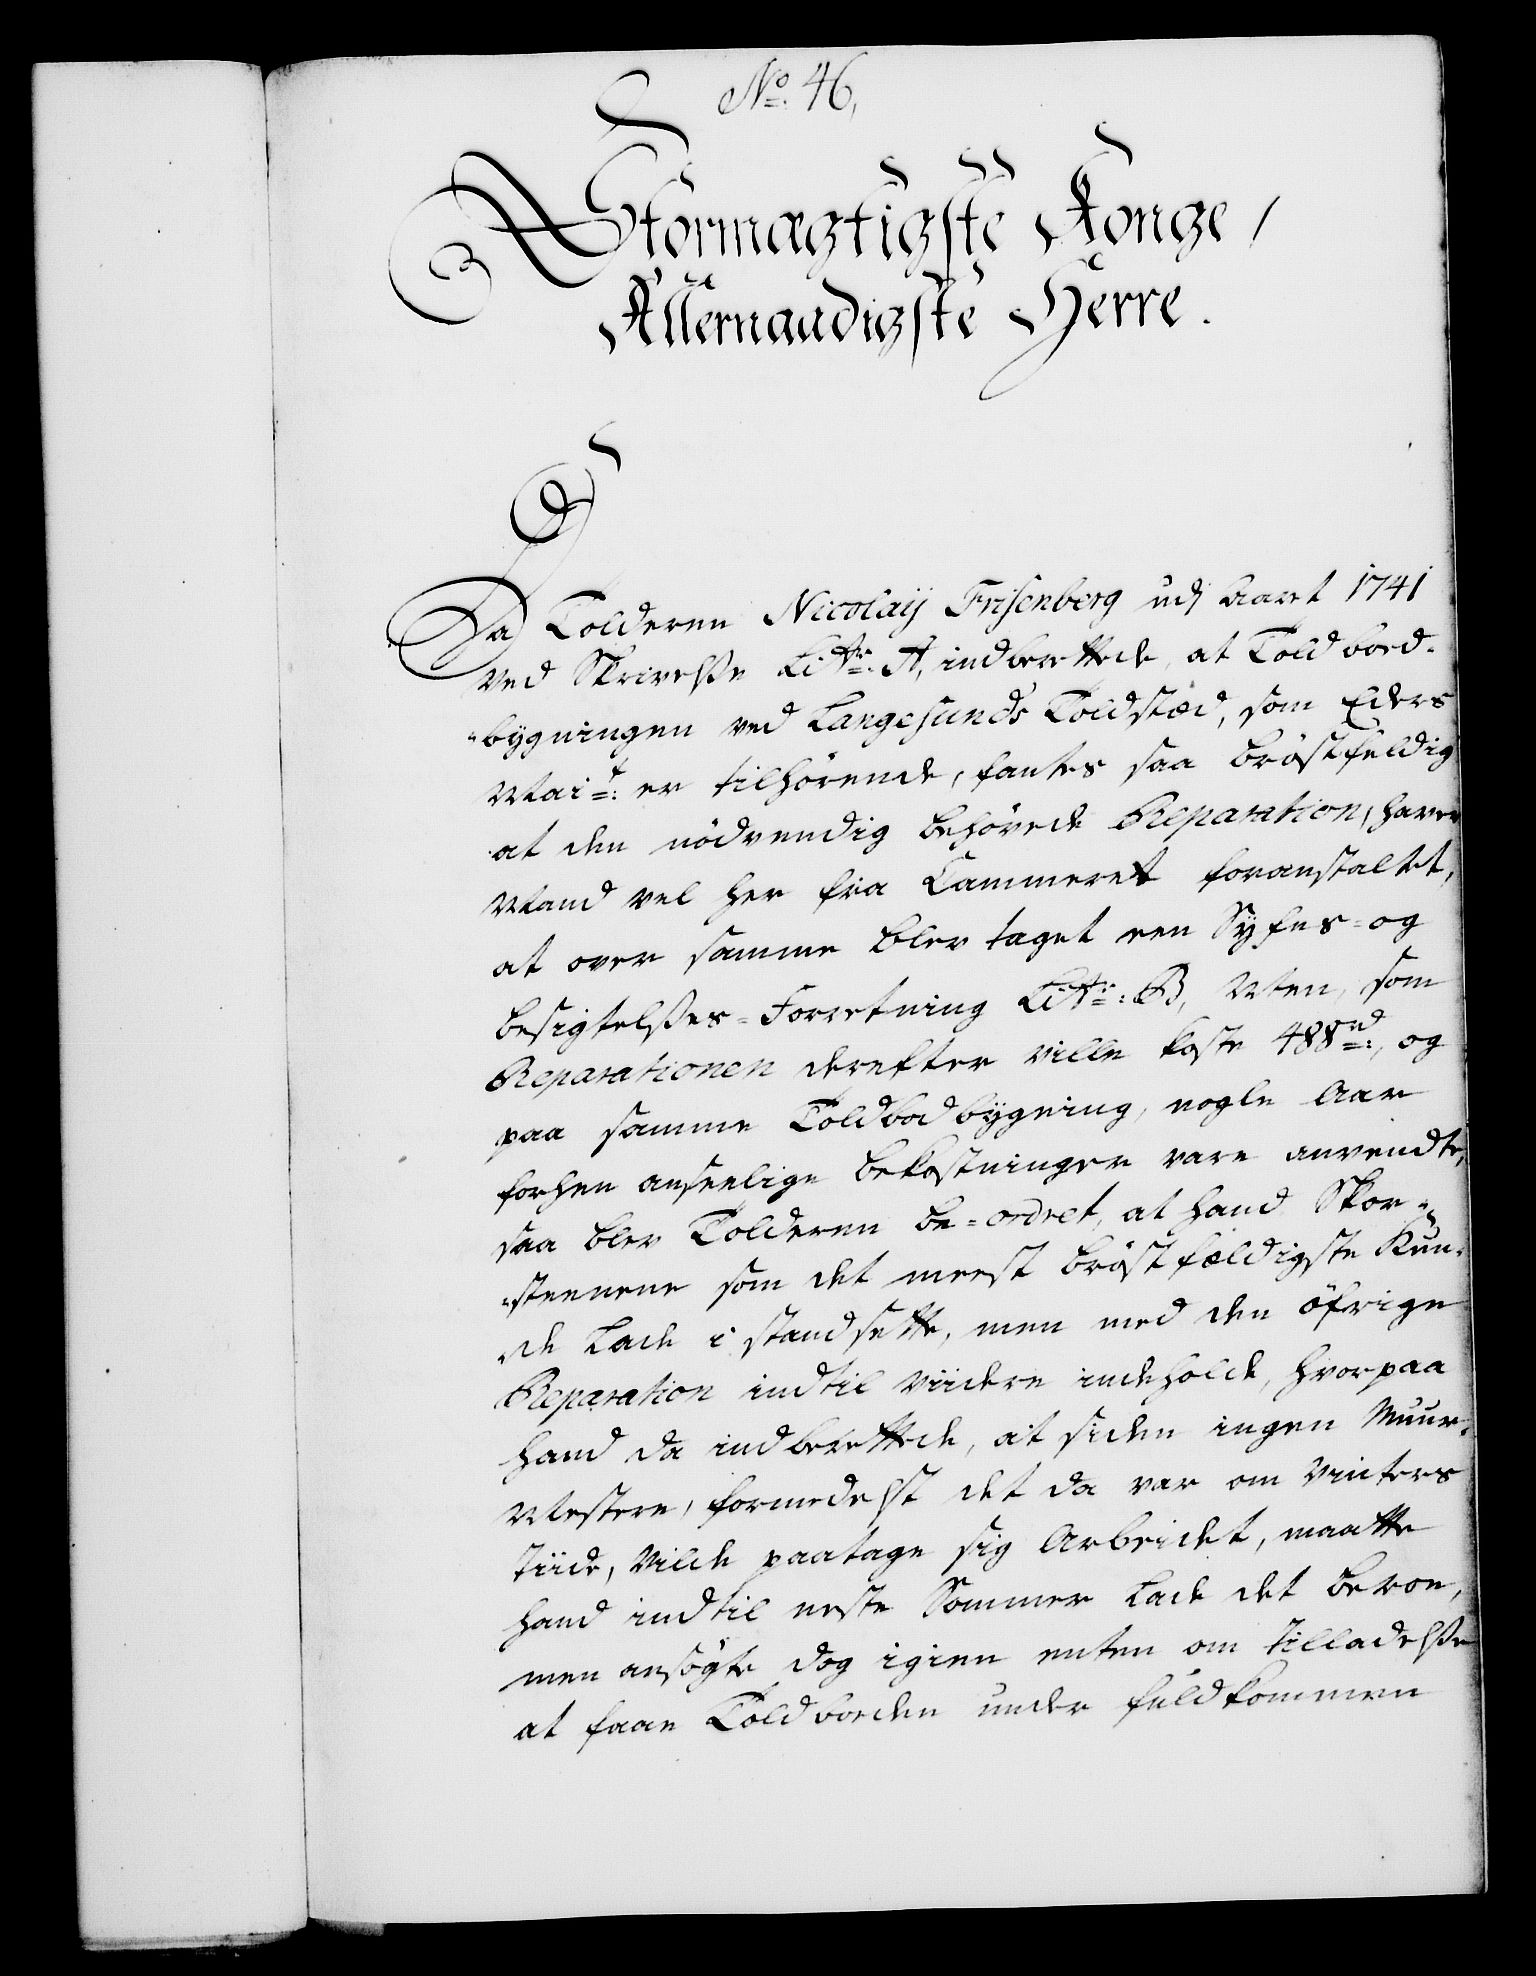 No. 46,
Stormægtigste Konge,
Allernaadigste Herre.
Da Tolderen Nicolaÿ Frisenberg udj Aaret 1741
ved Skrivelsse Littr: A, indberettede, at Toldboed-
-bÿgningen ved Langesunds Toldstæd, som Eders
Mait: er tilhørende, fantes saa brøstfeldig
at den nødvendig behøvede Reparation, haver
Mand vel her fra Cammeret foranstaltet,
at over samme blev taget een Sÿfns- og
besigtelsses-Forretning Littr: B, Men, som
Reparationen derefter ville koste 488rd:, og
paa samme Toldbodbÿgning, nogle Aar
forhen anseelige bekostninger vare anvendte,
saa blev Tolderen be-ordret, at hand Skor-
-steenene som det meest brøstfældigste Kun-
de lade i stand sette, men med den øfrige
Reparation indtil viidere indeholde, hvorpaa
hand da indberettede, at siden ingen Muur-
Mestere, formedelst det da var om Vinters
Tiide, vilde paatage sig Arbeidet, maatte
hand indtil neste Sommer lade det beroe,
men ansøgte dog igien enten om Tilladelsse
at faae Toldboeden under fuldkommen